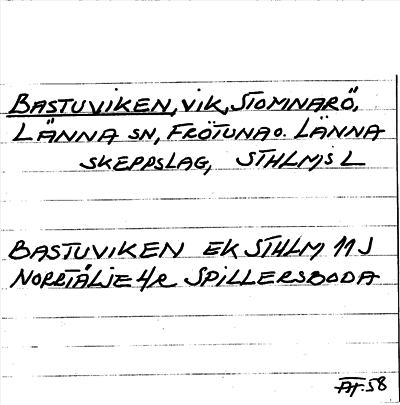 BASTUVIKEN, VIK, STOMNARÖ,
LÄNNA SN, FRÖTUNA O. LÄNNA
SKEPPSLAG, STHLMS L
BASTUVIKEN EK STHLM 11 J
NORRTÄLJE 4/R SPILLERSBODA
58